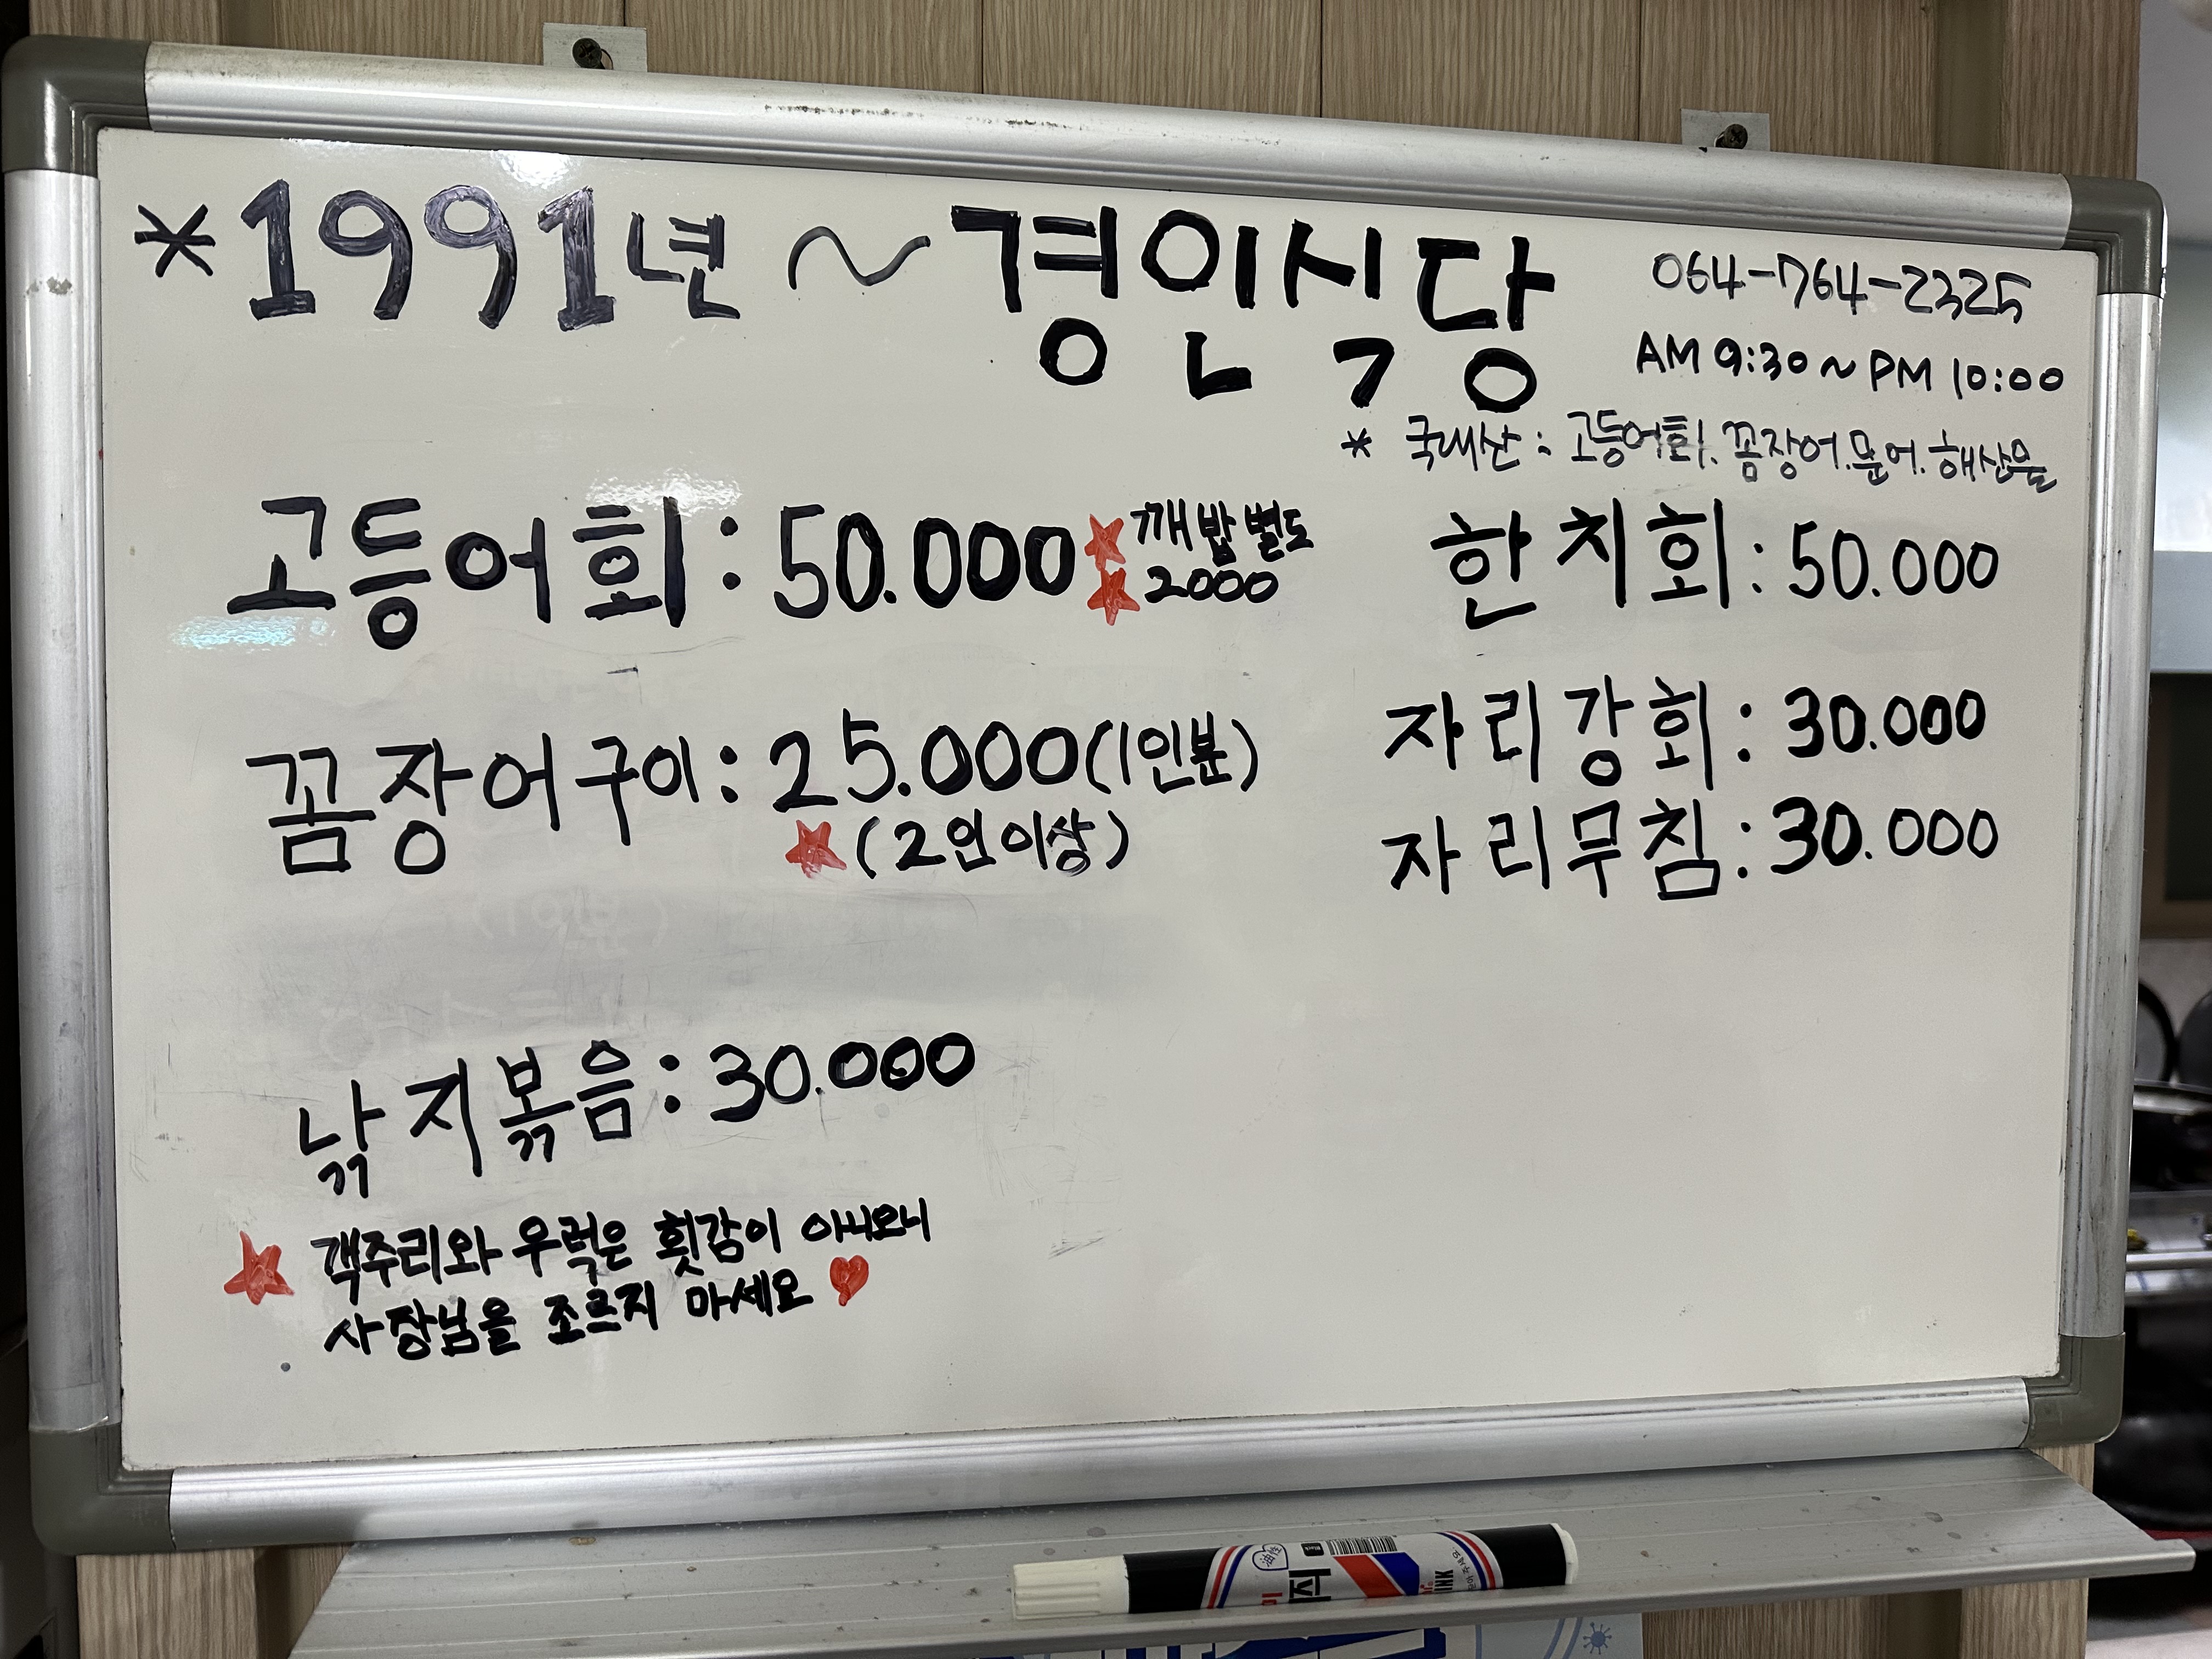 *1991년 ~ 경인식당
064-764-2325
AM 9:30~PM 10:00
* 국내산 : 고등어회. 꼼장어.문어.해산물
고등어회 : 50.000
깨밥별도
2000
꼼장어구이 : 25.000(1인분)
(2인이상)
낚지볶음 : 30.000
객주리와 우럭은 횟감이 아니오니
사장님을 조르지 마세요
한치회 : 50.000
자리강회 : 30.000
자리무침 : 30.000